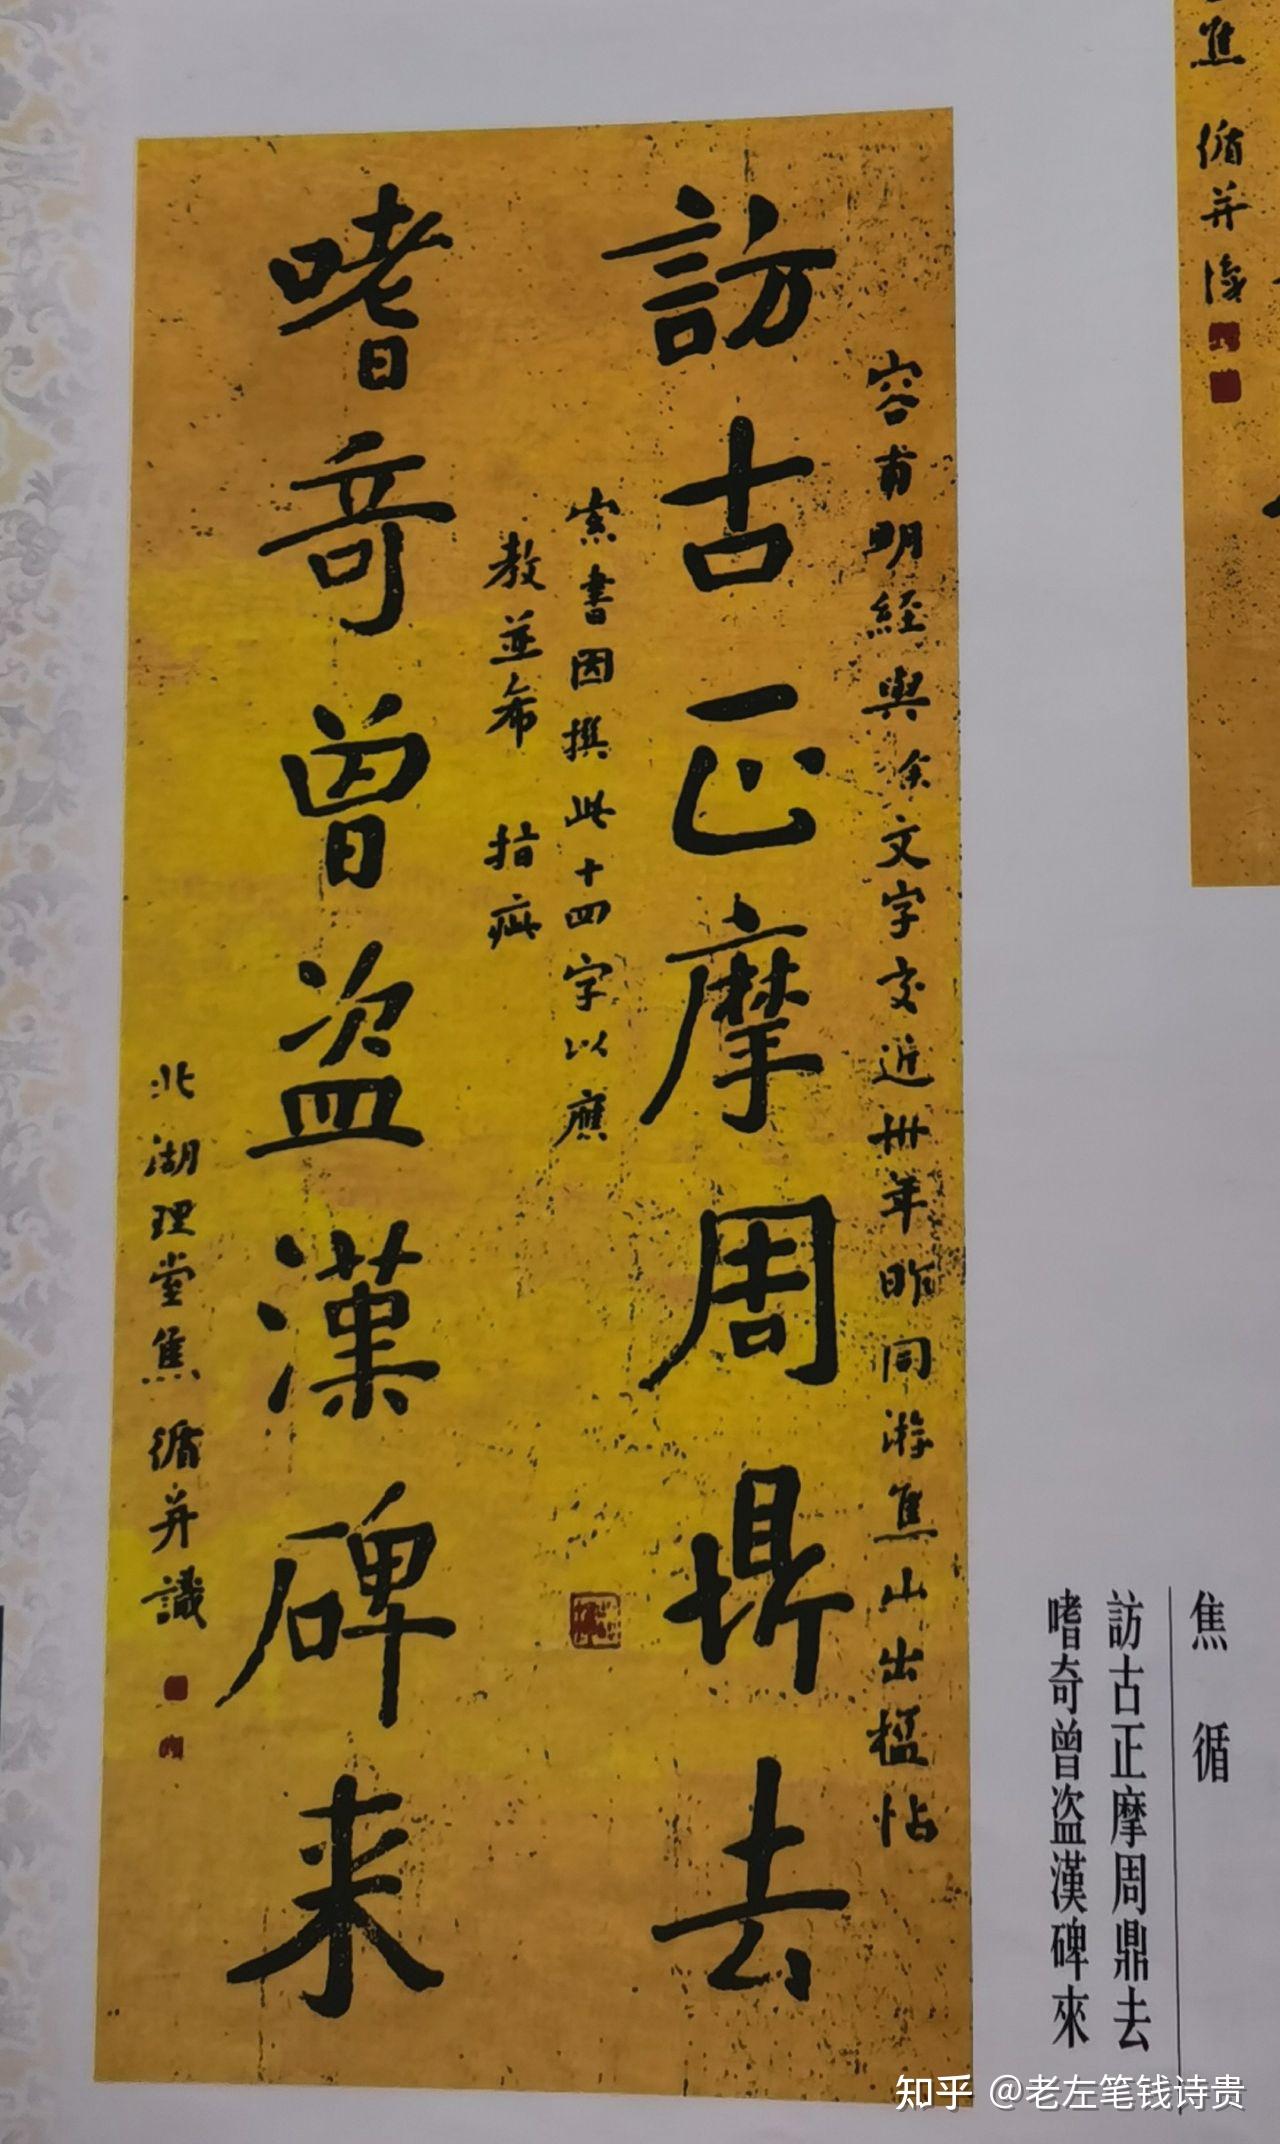 焦循并識
焦循
訪古正摩周鼎去
嗜奇曾盜漢碑來
容甫明經與余文字交近卅年昨同游焦山出楹帖
訪古正摩周鼎去
索書因撰此十四字以應
教並希 指疵
嗜奇曾盜漢碑来
北湖理堂焦循并識
知乎 @老左笔钱诗贵